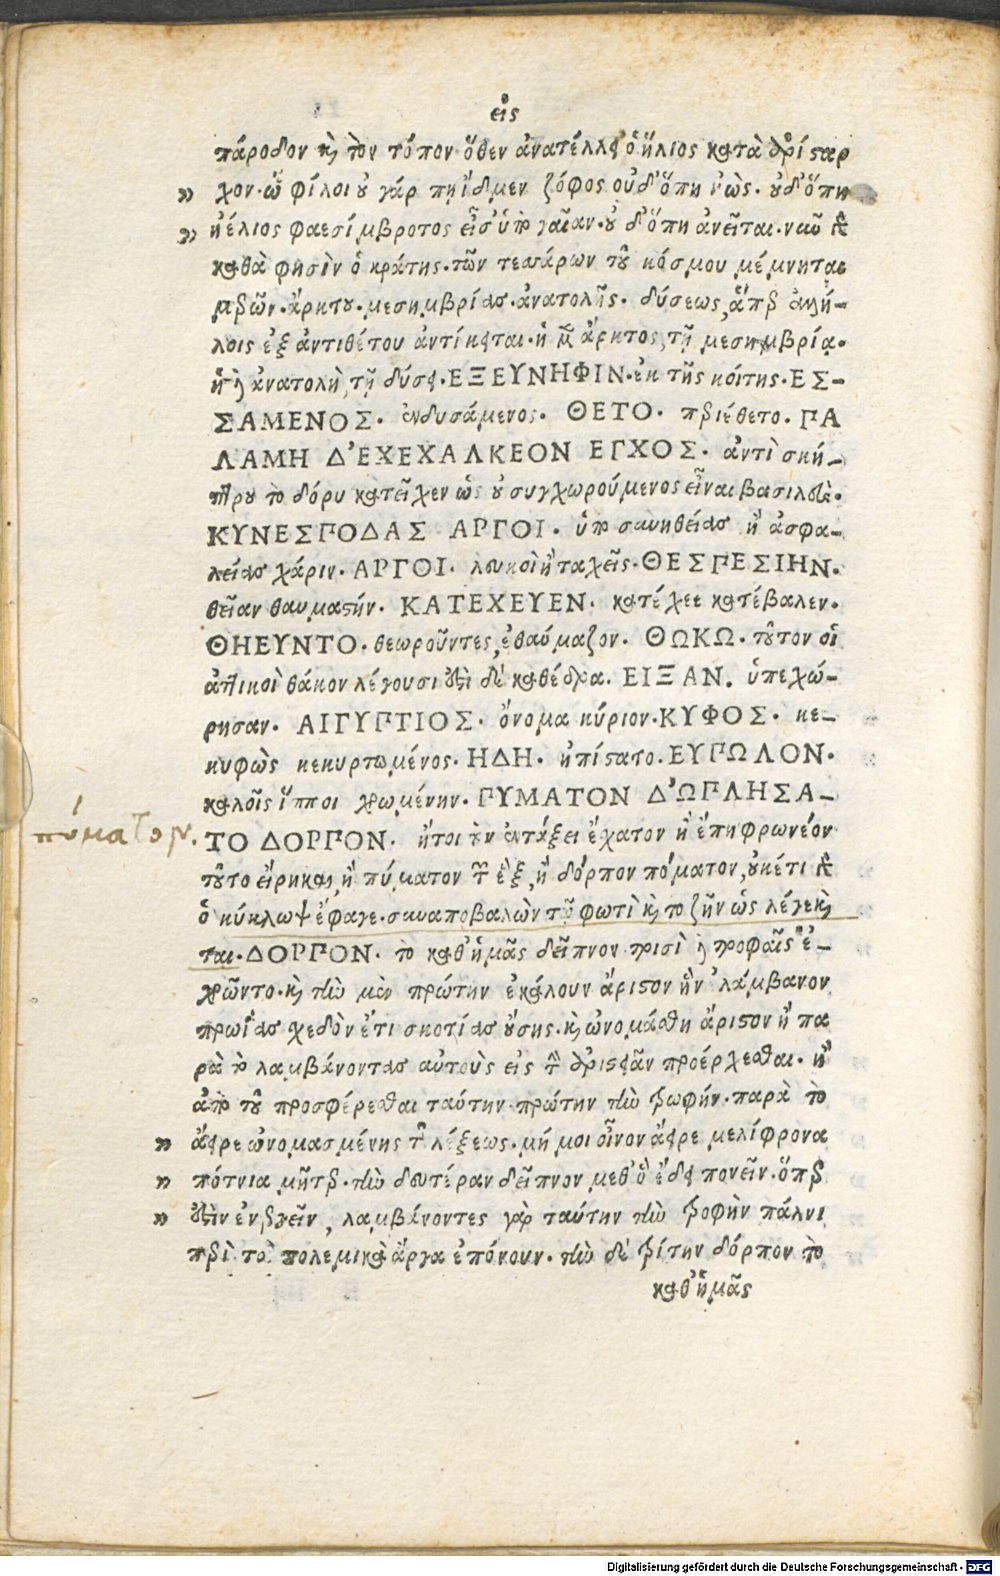 εἰς
πάροδον καὶ τὸν τόπον ὅθεν ἀνατέλλει ὁ ἥλιος κατὰ ἀρίσταρ
" χον· ὦ φίλοι οὐ γάρ τ' ἴδμεν ὅπη ζόφος οὐδ' ὅπη ἠώς· οὐδ' ὅπη
" ἠέλιος φαεσίμβροτος εἶσ' ὑπὸ γαῖαν· οὐδ' ὅπη ἀννεῖται· νῦν δὲ
καθὰ φησὶν ὁ κράτης· τῶν τεσσάρων τοῦ κόσμου μέμνηται
μερῶν· ἄρκτου· μεσημβρίας· ἀνατολῆς· δύσεως, ἅπερ ἀλλή-
λοις ἐξ ἀντιθέτου ἀντίκειται· ἡ μὲν ἄρκτος, τῇ μεσημβρίᾳ·
ἡ δὲ ἀνατολὴ, τῇ δύσει· ΕΞΕΥΝΗΦΙΝ· ἐκ τῆς κοίτης· ΕΣ-
ΣΑΜΕΝΟΣ· ἐνδυσάμενος· ΘΕΤΟ· περιέθετο· ΠΑ
ΛΑΜΗ Δ'ΕΧΕΧΑΛΚΕΟΝ ΕΓΧΟΣ· ἀντὶ σκή-
πτρου τὸ δόρυ κατεῖχεν ὡς οὐ συγχωρούμενος εἶναι βασιλεύς·
ΚΥΝΕΣΠΟΔΑΣ ΑΡΓΟΙ· ὑπὸ συνηθείας ἢ ἀσφα-
λείας χάριν· ΑΡΓΟΙ· λευκοὶ ἢ ταχεῖς· ΘΕΣΠΕΣΙΗΝ·
θεῖαν θαυμαστήν· ΚΑΤΕΧΕΥΕΝ· κατέχεε κατέβαλεν·
ΘΗΕΥΝΤΟ· θεωροῦντες, ἐθαύμαζον· ΘΩΚΩ· τοῦτον οἱ
ἀττικοὶ θάκον λέγουσι ἔστι δὲ καθέδρα. ΕΙΞΑΝ. ὑπεχώ-
ρησαν· ΑΙΓΥΠΤΙΟΣ· ὄνομα κύριον· ΚΥΦΟΣ· κε-
κυφὼς κεκυρτωμένος· ΗΔΗ· ἠπίστατο. ΕΥΠΩΛΟΝ·
καλοῖς ἵπποι χρωμένην· ΠΥΜΑΤΟΝ Δ'ΩΠΛΗΣΑ-
πύματον. ΤΟ ΔΟΡΠΟΝ· ἤτοι τὸν ἐν τάξει ἔσχατον ἢ ἐπηφρωνέον
τοῦτο εἴρηκας, ἢ πύματον τῶν ἓξ, ἢ δόρπον πόματον, οὐκέτι δὲ
ὁ κύκλωψ ἔφαγε· συναποβαλὼν τῷ φωτὶ καὶ τὸ ζῆν ὡς λέγεκ
ται· ΔΟΡΠΟΝ· τὸ καθ' ἡμᾶς δεῖπνον τρισὶ δὲ τροφαῖς ἐ-
χρῶντο· καὶ τὴν μὲν πρώτην ἐκάλουν ἄριστον ἣν ἐλάμβανον
πρωΐας σχεδὸν ἔτι σκοτίας οὔσης· καὶ ὠνομάσθη ἄριστον ἢ πα
ρὰ τὸ λαμβάνοντας αὐτοὺς εἰς τὸ ἀριστᾶν προέρχεσθαι· ἢ
ἀπὸ τοῦ προσφέρεσθαι ταύτην πρώτην τὴν τρωφήν· παρὰ τὸ
" ἄφρε ὠνομασμένης τῆς λέξεως· μή μοι οἶνον ἄφρε μελίφρονα
" πότνια μῆτερ· τὴν δευτέραν δεῖπνον μεθ' ὃ ἔδει πονεῖν· ὅπερ
" ἐστὶν ἐνεργεῖν, λαμβάνοντες γὰρ ταύτην τὴν τροφὴν πάλνι
περὶ τὰ πολεμικὰ ἔργα ἐπόνουν· τὴν δὲ τρίτην δόρπον τὸ
καθ' ἡμᾶς
Digitalisierung gefördert durch die Deutsche Forschungsgemeinschaft - DFG